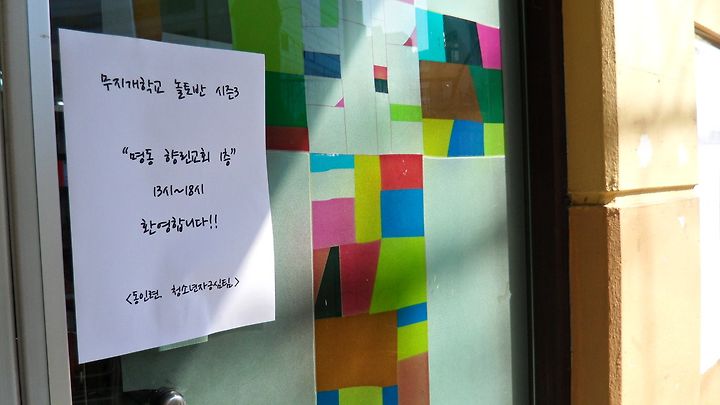 무지개학교 놀토반 시즌3
"명동 향린교회 1층"
13시~18시
환영합니다!!
<동인련. 청소년자긍심팀>